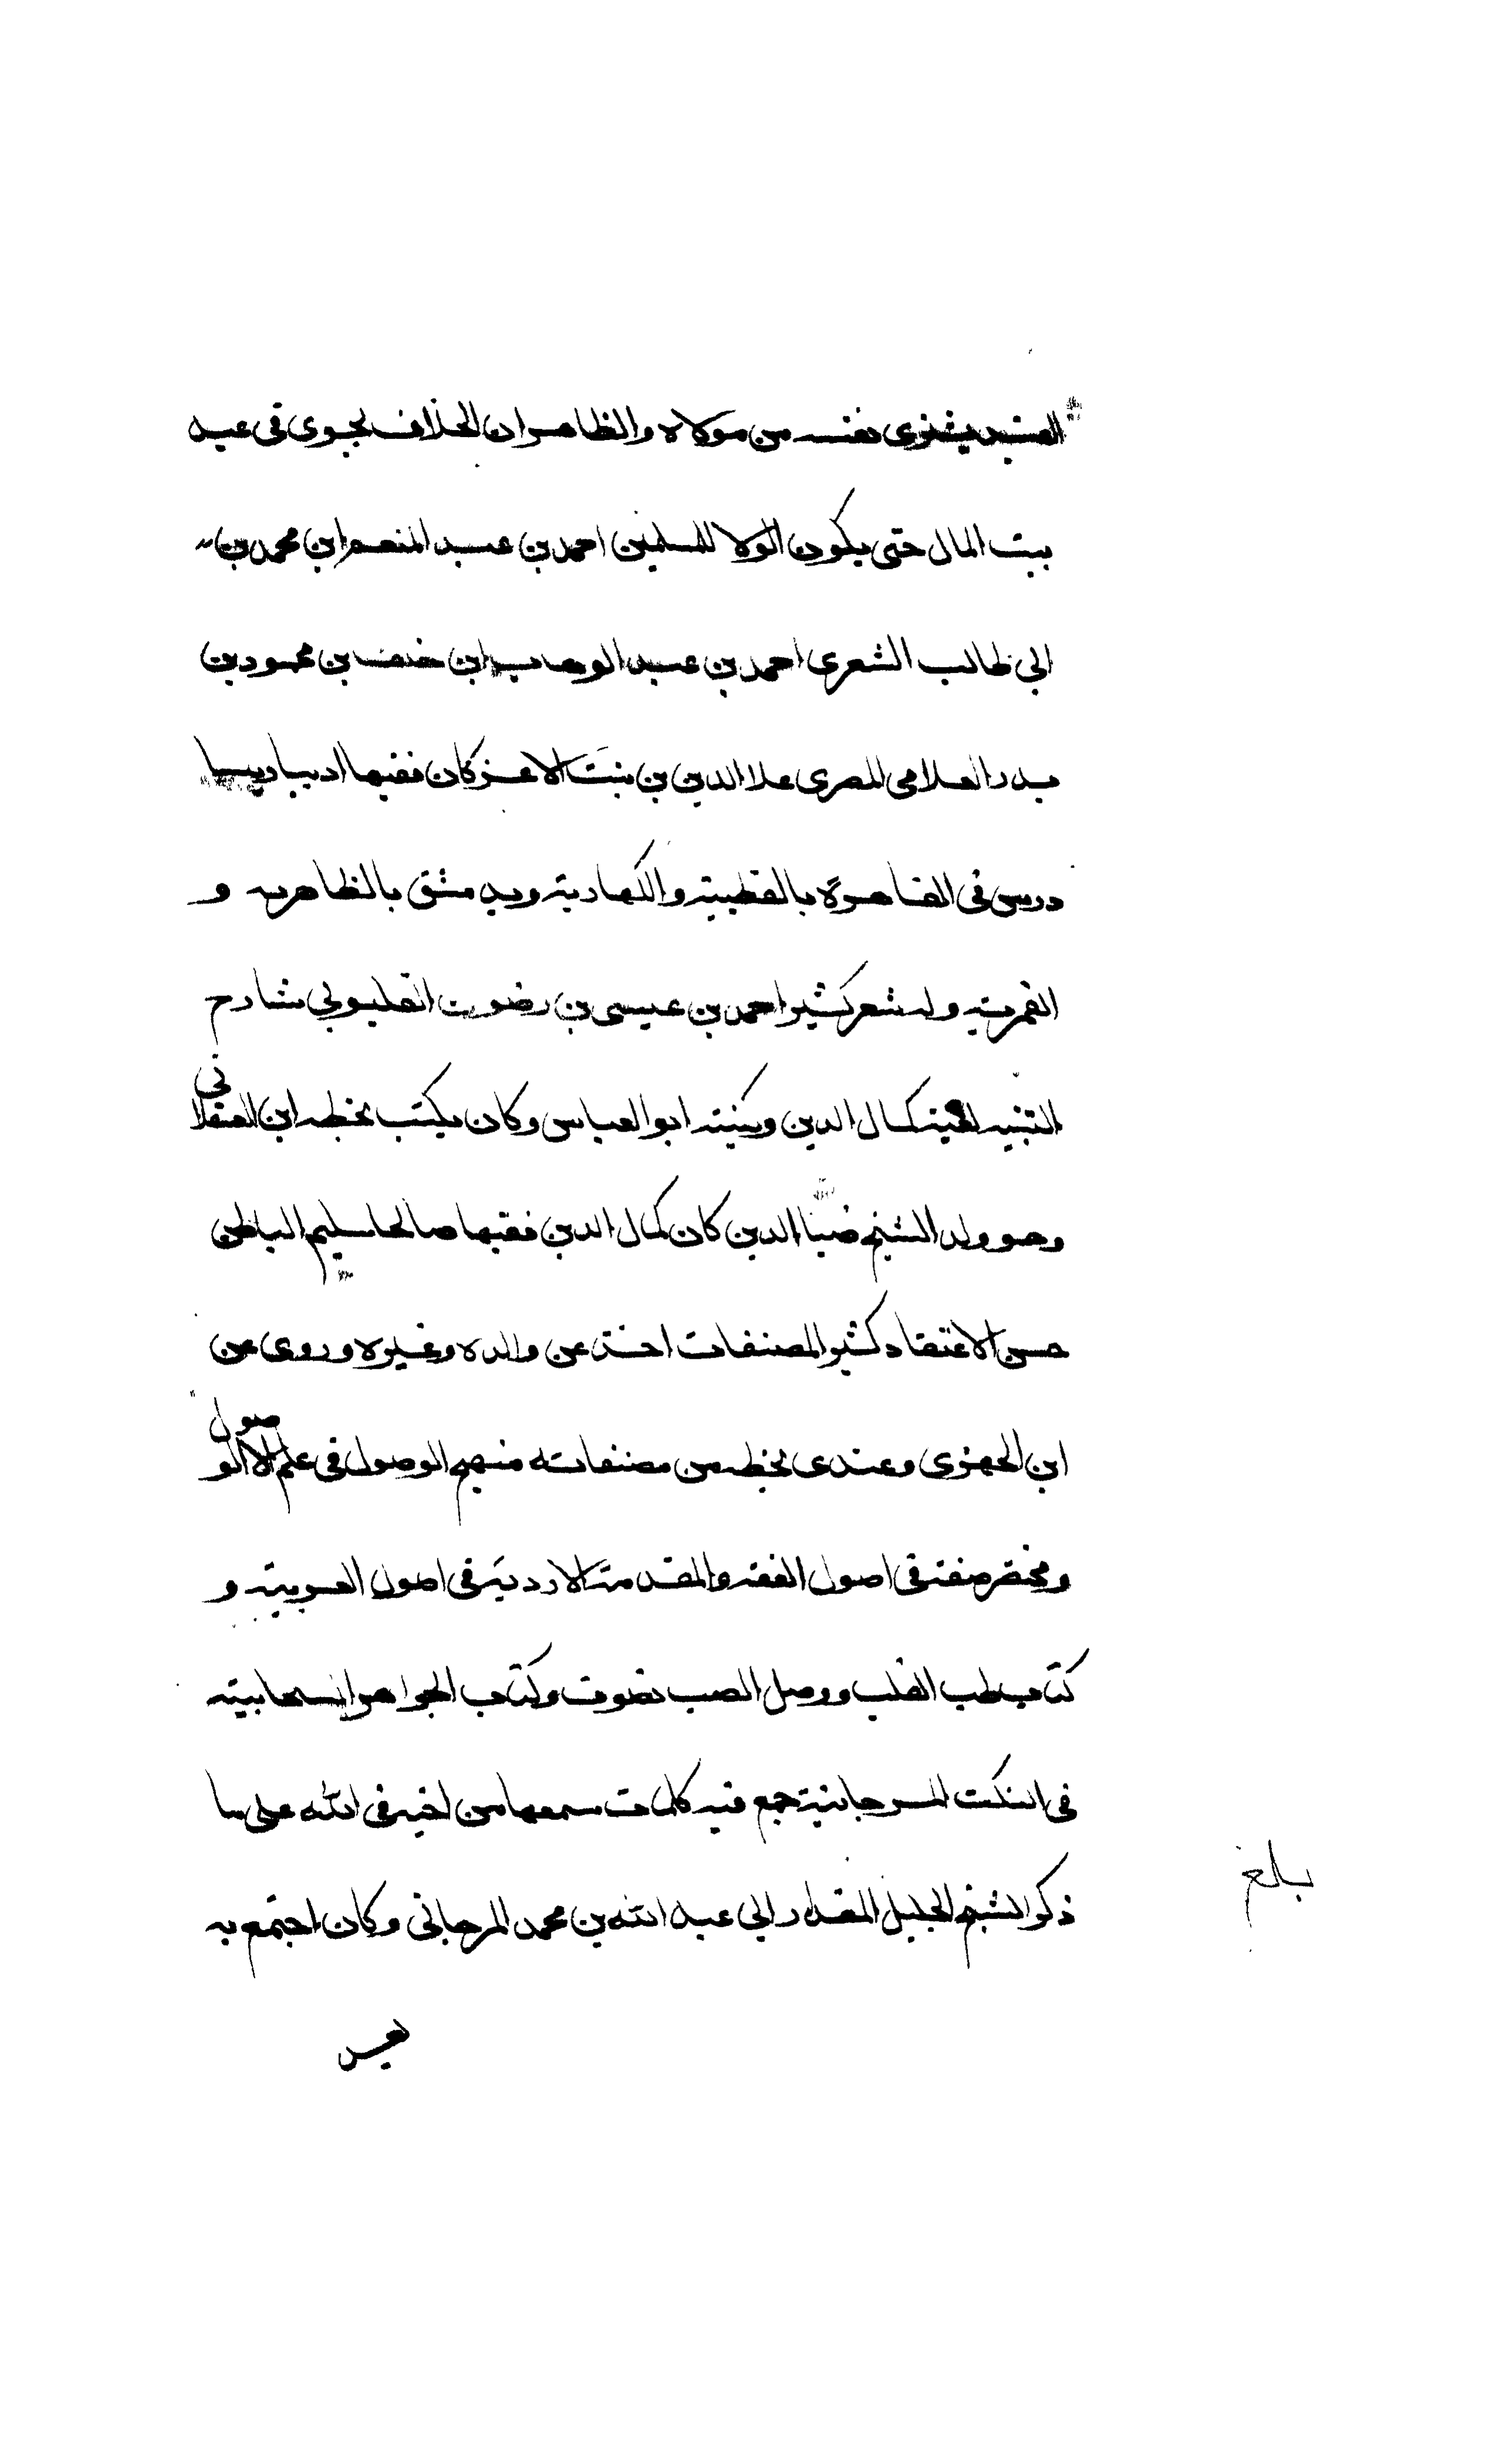 العبد يشتري نفسه من مولاه والظاهر ان الخلاف يجري في عبد
بيت المال حتى يكون الولا للمسلمين احمد بن عبد المنعم ابن محمد بن
ابي طالب الشعري احمد بن عبد الوهاب ابن خلف بن محمود بن
بدر العلامي المصري علا الدين بن بنت الاعز كان فقيها اديبا رييسا
درس في القاهرة بالقطبية والكهارية وبدمشق بالظاهرية و
القمرية وله شعر كثير احمد بن عيسى بن رضوان القليوبي شارح
التنبيه لقبه كمال الدين وكنيته ابو العباس وكان يكتب بخطه ابن العسقلاني
وهو ولد الشيخ ضيا الدين كان كمال الدين فقيها صالحا سليم الباطن
حسن الاعتقاد كثير المصنفات اخذ عن والده وغيره وروى عن
ابن الجميزي وعندي بخطه من مصنفاته منهج الوصول في علم الاصول
ومختصر صنفه في اصول الفقه والمقدمة الاحمدية في اصول العربية و
كتاب طب القلب ووصل الصب تصوف وكتاب الجواهر السحابية
في النكت المرجانية جمع فيه كلمات سمعها من اخيه في الله على ما
ذكر الشيخ الجليل المقدار ابي عبد الله بن محمد المرجاني وكان اجتمع به
بلغ